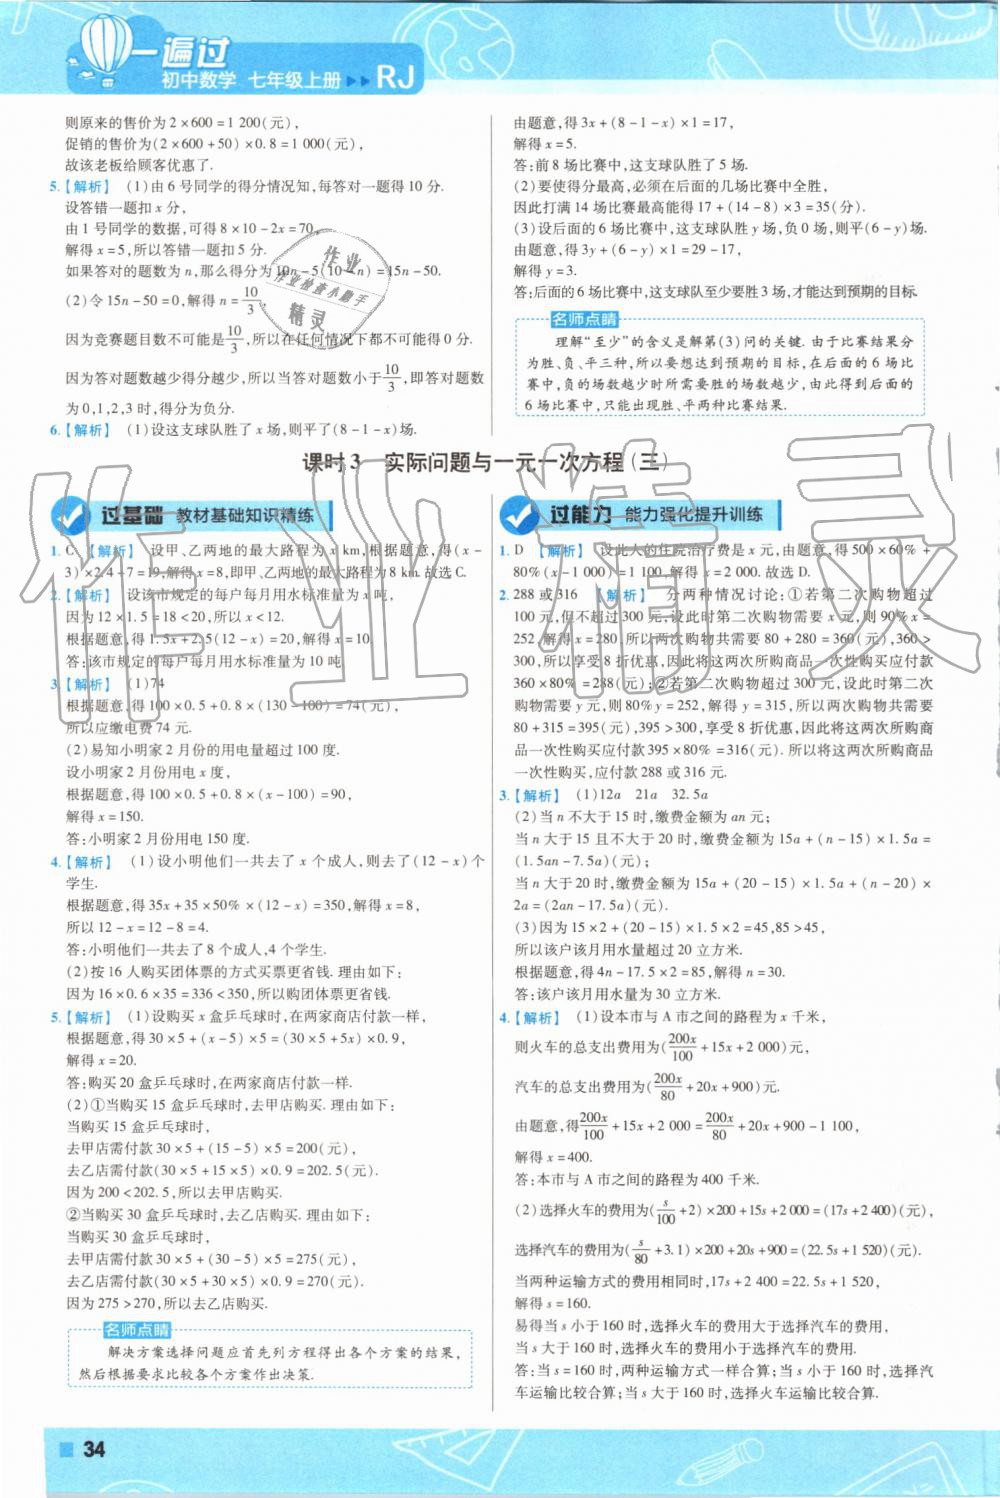 一遍过
初中数学 七年级上册 ▶▶ RJ
则原来的售价为2×600=1 200(元),
促销的售价为(2×600+50)×0.8=1 000(元),
故该老板给顾客优惠了.
5.【解析】 (1)由6号同学的得分情况知,每答对一题得10分.
设答错一题扣x分,
由1号同学的数据,可得8×10-2x=70,
解得x=5,所以答错一题扣5分.
如果答对的题数为n,那么得分为10n-5(10-n)=15n-50.
(2)令15n-50=0,解得n=10/3,
因为竞赛题目数不可能是10/3,所以在任何情况下都不可能得0分.
因为答对题数越少得分越少,所以当答对题数小于10/3,即答对题数
为0,1,2,3时,得分为负分.
6.【解析】 (1)设这支球队胜了x场,则平了(8-1-x)场.
由题意,得3x+(8-1-x)×1=17,
解得x=5.
答:前8场比赛中,这支球队胜了5场.
(2)要使得分最高,必须在后面的几场比赛中全胜,
因此打满14场比赛最高能得17+(14-8)×3=35(分).
(3)设后面的6场比赛中,这支球队胜y场,负0场,则平(6-y)场.
由题意,得3y+(6-y)×1=29-17,
解得y=3.
答:后面的6场比赛中,这支球队至少要胜3场,才能达到预期的目标.
名师点睛
理解“至少”的含义是解第(3)问的关键.由于比赛结果分
为胜、负、平三种,所以要想达到预期的目标,在后面的6场比
赛中,负的场数越少时所需要胜的场数越少,由此得到后面的
6场比赛中,只能出现胜、平两种比赛结果.
课时3 实际问题与一元一次方程(三)
过基础 教材基础知识精练
1. C 【解析】 设甲、乙两地的最大路程为x km,根据题意,得(x-
3)×2.4+7=19,解得x=8,即甲、乙两地的最大路程为8 km.故选C.
2.【解析】 设该市规定的每户每月用水标准量为x吨,
因为12×1.5=18<20,所以x<12.
根据题意,得1.5x+2.5(12-x)=20,解得x=10.
答:该市规定的每户每月用水标准量为10吨.
3.【解析】 (1)74
根据题意,得100×0.5+0.8×(130-100)=74(元),
所以应缴电费74元.
(2)易知小明家2月份的用电量超过100度.
设小明家2月份用电x度,
根据题意,得100×0.5+0.8×(x-100)=90,
解得x=150.
答:小明家2月份用电150度.
4.【解析】 (1)设小明他们一共去了x个成人,则去了(12-x)个
学生.
根据题意,得35x+35×50%×(12-x)=350,解得x=8,
所以12-x=12-8=4.
答:小明他们一共去了8个成人,4个学生.
(2)按16人购买团体票的方式买票更省钱.理由如下:
因为16×0.6×35=336<350,所以购团体票更省钱.
5.【解析】 (1)设购买x盒乒乓球时,在两家商店付款一样,
根据题意,得30×5+(x-5)×5=(30×5+5x)×0.9,
解得x=20.
答:购买20盒乒乓球时,在两家商店付款一样.
(2)①当购买15盒乒乓球时,去甲店购买.理由如下:
当购买15盒乒乓球时,
去甲店需付款30×5+(15-5)×5=200(元),
去乙店需付款(30×5+15×5)×0.9=202.5(元),
因为200<202.5,所以去甲店购买.
②当购买30盒乒乓球时,去乙店购买.理由如下:
当购买30盒乒乓球时,
去甲店需付款30×5+(30-5)×5=275(元),
去乙店需付款(30×5+30×5)×0.9=270(元).
因为275>270,所以去乙店购买.
名师点睛
解决方案选择问题应首先列方程得出各个方案的结果,
然后根据要求比较各个方案作出决策.
过能力 能力强化提升训练
1. D 【解析】 设此人的住院治疗费是x元,由题意,得500×60%+
80%(x-1 000)=1 100,解得x=2 000.故选D.
2. 288或316 【解析】 分两种情况讨论:①若第二次购物超过
100元,但不超过300元,设此时第二次购物需要x元,则90%x=
252,解得x=280,所以两次购物共需要80+280=360(元),360>
300,所以享受8折优惠,因此将这两次所购商品一次性购买应付款
360×80%=288(元);②若第二次购物超过300元,设此时第二次
购物需要y元,则80%y=252,解得y=315,所以两次购物共需要
80+315=395(元),395>300,享受8折优惠,因此将这两次所购商
品一次性购买应付款395×80%=316(元).所以将这两次所购商品
一次性购买,应付款288或316元.
3.【解析】 (1)12a 21a 32.5a
(2)当n不大于15时,缴费金额为an元;
当n大于15且不大于20时,缴费金额为15a+(n-15)×1.5a=
(1.5an-7.5a)(元);
当n大于20时,缴费金额为15a+(20-15)×1.5a+(n-20)×
2a=(2an-17.5a)(元).
(3)因为15×2+(20-15)×1.5×2=45,85>45,
所以该户该月用水量超过20立方米.
根据题意,得4n-17.5×2=85,解得n=30.
答:该户该月用水量为30立方米.
4.【解析】 (1)设本市与A市之间的路程为x千米,
则火车的总支出费用为(200x/100+15x+2 000)元,
汽车的总支出费用为(200x/80+20x+900)元.
由题意,得200x/100+15x+2 000=200x/80+20x+900-1 100,
解得x=400.
答:本市与A市之间的路程为400千米.
(2)选择火车的费用为(s/100+2)×200+15s+2 000=(17s+2 400)(元),
选择汽车的费用为(s/80+3.1)×200+20s+900=(22.5s+1 520)(元).
当两种运输方式的费用相同时,17s+2 400=22.5s+1 520,
解得s=160.
易得当s小于160时,选择火车的费用大于选择汽车的费用,
当s大于160时,选择火车的费用小于选择汽车的费用.
答:当s=160时,两种运输方式一样合算;当s小于160时,选择汽
车运输比较合算;当s大于160时,选择火车运输比较合算.
34
作业
作业检查小助手
精灵
作业精灵